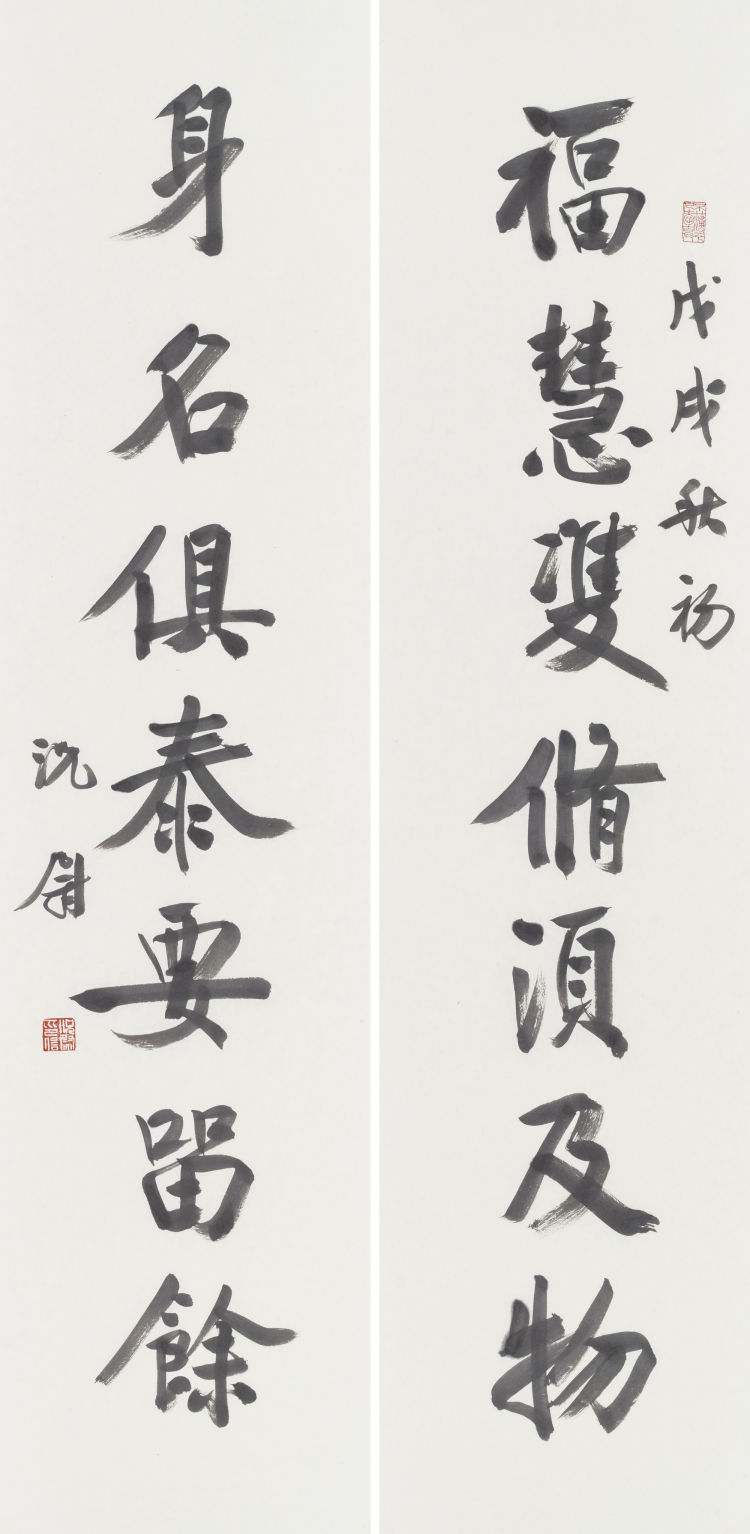 戊戌秋初
福慧雙脩須及物
身名俱泰要留餘
沈